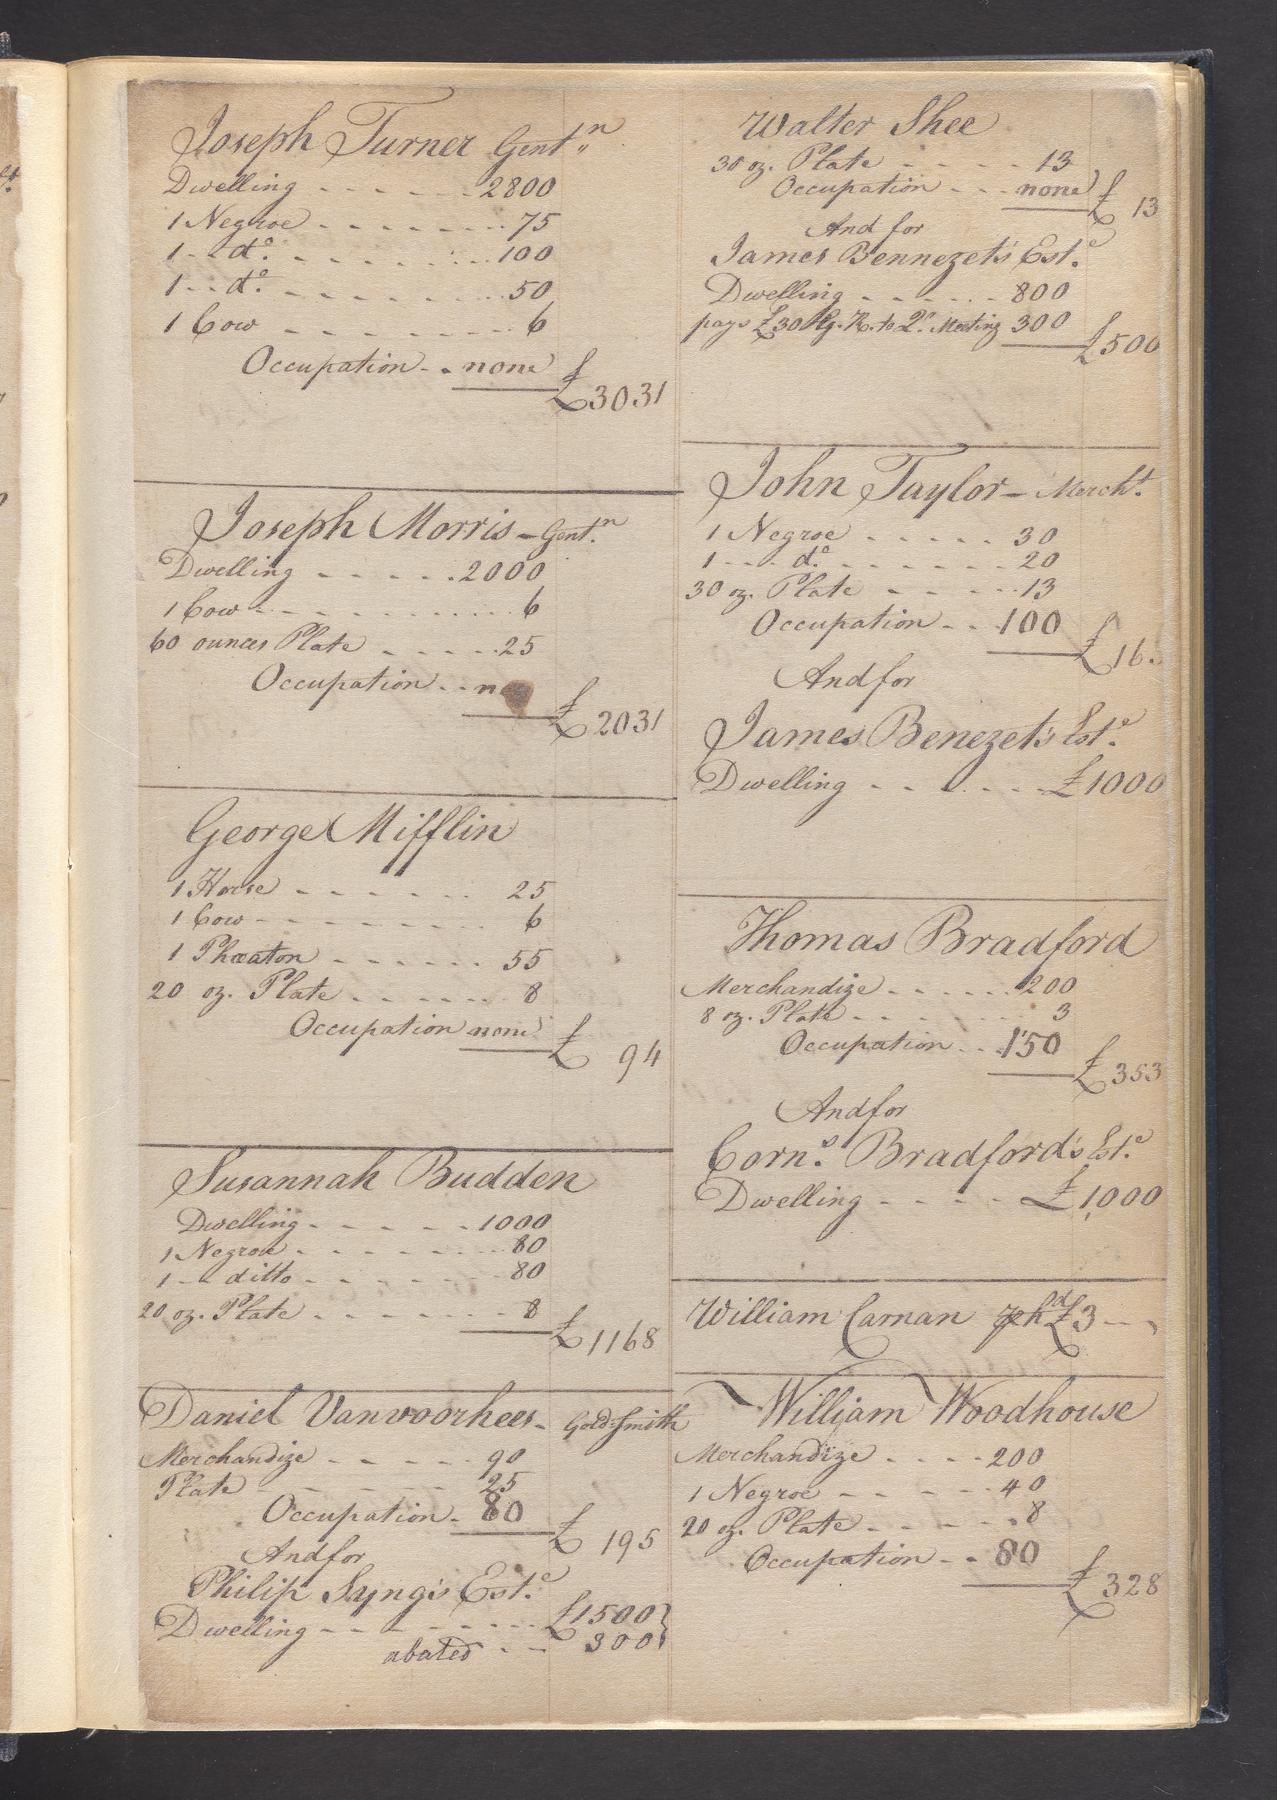 Joseph Turner Gent.n
Dwelling - - - - - 2800
1 Negroe - - - - - - - 75
1 - - d.o - - - - - - - 100
1 - - d.o - - - - - - - 50
1 Cow - - - - - - - 6
Occupation - - none
£3031
Joseph Morris - Gent.n
Dwelling - - - - - 2000
1 Cow - - - - - - - 6
60 ounces Plate - - - - - 25
Occupation - -
£2031
George Mifflin
1 Horse - - - - - - 25
1 Cow - - - - - - - 6
1 Phæaton - - - - - - 55
20 oz. Plate - - - - - - 8
Occupation none
£ 94
Susannah Budden
Dwelling - - - - - 1000
1 Negroe - - - - - - 80
1 - - ditto - - - - - - 80
20 oz. Plate - - - - - - 8
£1168
Daniel Vanvoorhees - Gold-Smith
Merchandize - - - - - 90
Plate - - - - - - 25
Occupation - 80
£ 195
And for
Philip Syng's Est.e
Dwelling - - - - - - - £1500
abated - - 300
Walter Shee
30 oz. Plate - - - - - 13
Occupation - - - none
£ 13
And for
James Bennezet's Est.e
Dwelling - - - - - 800
pays £30 Meeting 300
£500
John Taylor - Merch.t
1 Negroe - - - - - 30
1 - - - d.o - - - - - - 20
30 oz. Plate - - - - - 13
Occupation - - 100
£16
And for
James Benezet's Est.e
Dwelling - - - - - - £1000
Thomas Bradford
Merchandize - - - - - - 200
8 oz. Plate - - - - - - 3
Occupation - - 150
£353
And for
Corn.s Bradford's Est.e
Dwelling - - - - - £1,000
William Carnan £3 - -
William Woodhouse
Merchandize - - - - 200
1 Negroe - - - - - 40
20 oz. Plate - - - - - 8
Occupation - - 80
£328